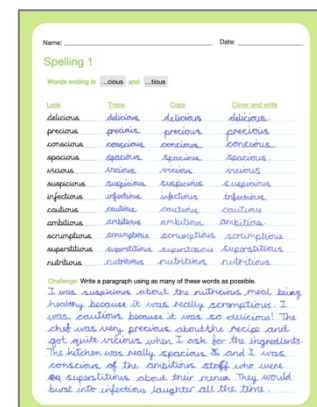 Name: Date:
Spelling 1
Words ending in ...cious and ...tious
Look Trace Copy Cover and write
delicious delicious delicious delicious
precious precious precious precious
conscious conscious concious concious
spacious spacious spacious spacious
vicious vicious vicious vicious
suspicious suspicious suspicious suspicious
infectious infectious infectious infectious
cautious cautious cautious cautious
ambitious ambitious ambitious ambitious
scrumptious scrumptious scrumptious scrumptious
superstitious superstitious superstitious superstitious
nutritious nutritious nutritious nutritious
Challenge: Write a paragraph using as many of these words as possible.
I was suspicious about the nutricious meal being
healthy because it was really scromptious. I
was cautious because it was so delicious! The
chef was very precious about the recipe and
got quite vicious when I ask for the ingredients.
The kitchen was really spacious and I was
conscious of the ambitious staff who were
superstitious about their menu. They would
burst into infectious laughter all the time.